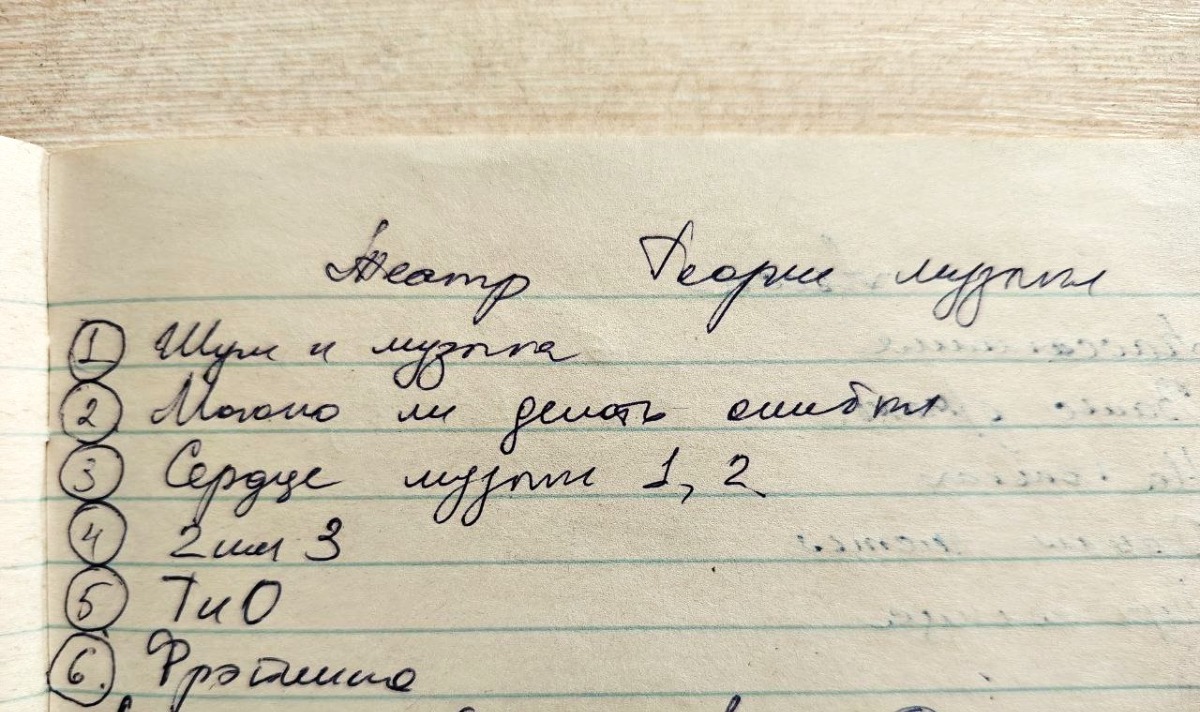 Театр Теории музыки
1 Шум и музыка
2 Можно ли делать ошибки
3 Сердце музыки 1, 2
4 2 или 3
5 ТиО
6.